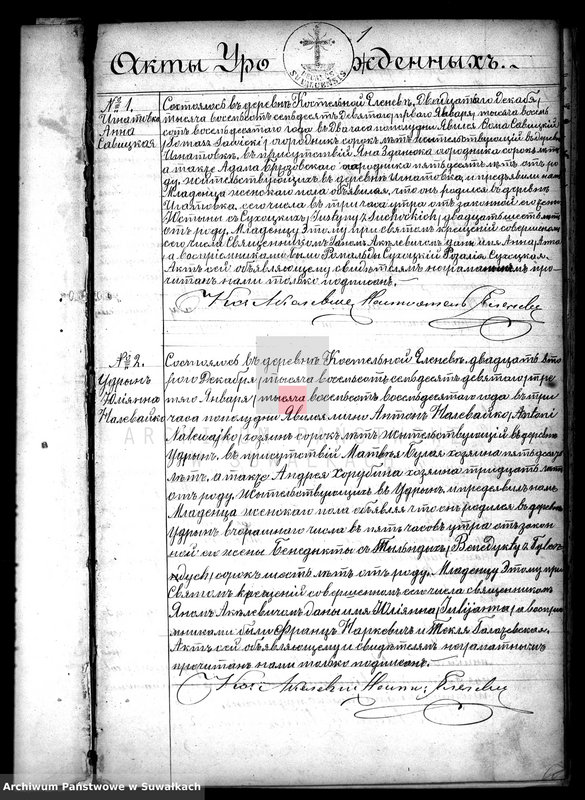 1
Акты Урожденныхъ.
SUVALCENSIS
№ 1.
Игнатовка
Анна
Савицкая
Состоялось въ деревнѣ Костельной Еленевѣ, Двадцатаго Декабря
тысяча восемьсотъ семьдесятъ девятаго перваго Января, тысяча восемь
сотъ восемьдесятаго года въ два часа пополудни. Явился Ѳома Савицкій
Tomasz Sawicki огородникъ сорокъ лѣтъ жительствующій въ деревнѣ
Игнатовкѣ, въ присутствіи Яна Зданюка огородника сорокъ лѣтъ
а также Адама огородника пятьдесятъ лѣтъ отъ ро
ду, жительствующихъ въ деревнѣ Игнатовка, и предъявили намъ
Младенца женскаго пола объявляя, что онъ родился въ деревнѣ
Игнатовка, сего числа въ три часа утра отъ законной его жены
Юстыны съ Сухоцкихъ, Justyny z Suchockich, двадцать шесть лѣтъ
отъ роду. Младенцу Этому при святомъ крещеніи совершенномъ
сего числа Священникомъ Яномъ Акелевичемъ дано имя Анна, Anna
а воспріемниками были Ромальдъ Сухоцкій Розалія Сухоцкая.
Актъ сей объявляющему свидѣтелямъ неграматнымъ про
читанъ нами только подписанъ.
Кс. Акелевичъ Настоятель Еленевск
№ 2.
Удрынъ
Юліянна
Налевайко
Состоялось въ деревнѣ Костельной Еленевѣ, двадцать вто
рого Декабря тысяча восемьсотъ семьдесятъ девятаго, тре
тяго Января, тысяча восемьсотъ восемьдесятаго года въ три
часа пополудни Явился лично Антонъ Налевайко, Antoni
Nalewajko, хозяинъ сорокъ лѣтъ жительствующій въ деревнѣ
Удрынъ. въ присутствіи Матвѣя Булая хозяина пятьдесятъ
лѣтъ, а также Андрея Хорубина хозяина тридцать лѣтъ
отъ роду. жительствующихъ въ Удрынъ, и предъявилъ намъ
Младенца женскаго пола объявляя что онъ родился въ деревнѣ
Удрынъ вчорашняго числа въ пять часовъ утра отъ закон
ной его жены Бенедыкты съ Benedykty z
сорокъ лѣтъ отъ роду. Младенцу Этому при
Святомъ крещеніи совершенномъ сего числа священникомъ
Яномъ Акелевичемъ дано имя Юліянна, Julijanna, а воспрі
емниками были Францъ Нарковичъ и Текля Балажевская.
Актъ сей объявляющему и свидѣтелямъ неграматнымъ
прочитанъ нами только подписанъ.
Кс. Акелевичъ Наст. Еленевск
Archiwum Państwowe w Suwałkach